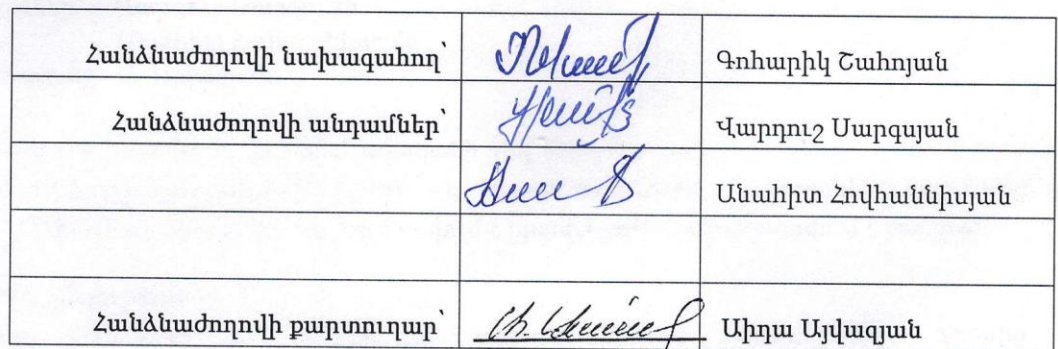 Հանձնաժողովի նախագահող՝ Գոհարիկ Շահոյան
Հանձնաժողովի անդամներ՝ Վարդուշ Սարգսյան
Անահիտ Հովհաննիսյան
Հանձնաժողովի քարտուղար՝ Աիդա Այվազյան